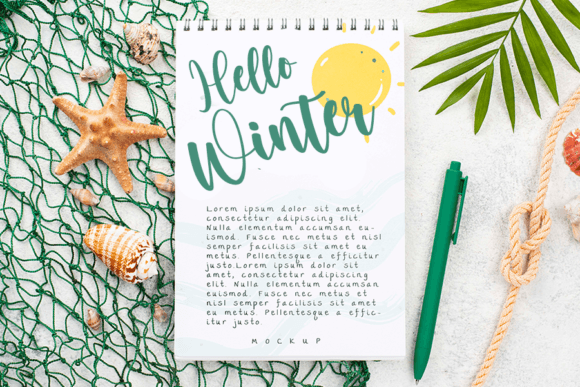 Hello
Winter
Lorem ipsum dolor sit amet,
consectetur adipiscing elit.
Nulla elementum accumsan eu-
ismod. Fusce metus et nisl
semper facilisis sit amet eu
metus. Pellentesque a efficitur
justo.Lorem ipsum dolor sit
amet, consectetur adipiscing
elit. Nulla elementum accumsan
euismod. Fusce metus et nisl
semper facilisis sit amet eu
metus. Pellentesque a effic-
itur justo.
MOCKUP